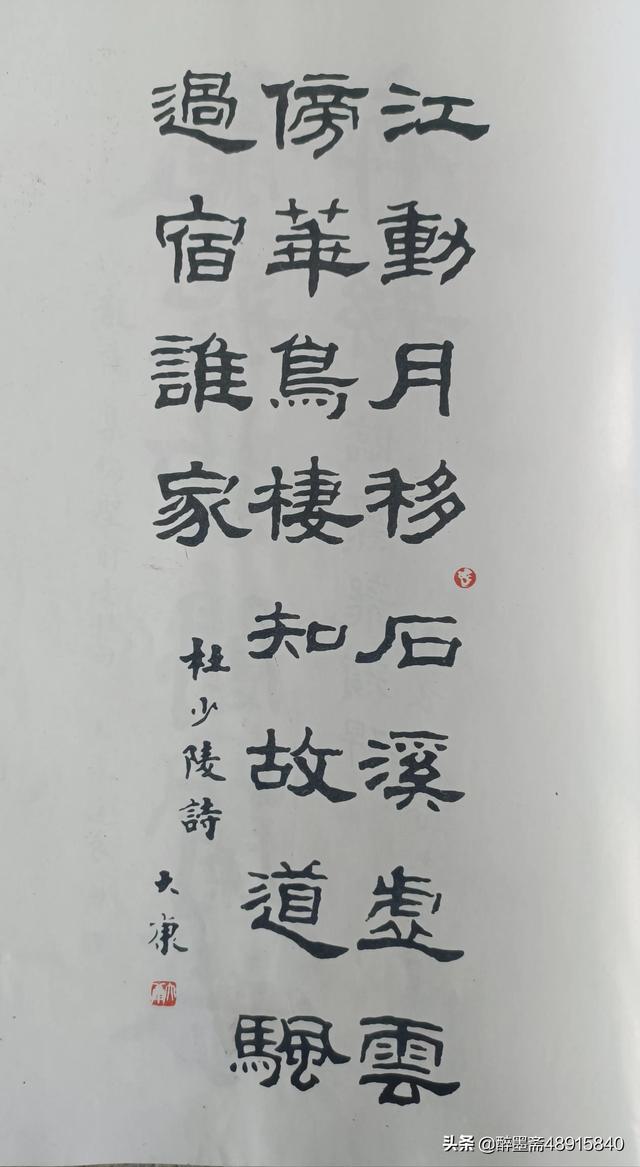 江動月移石溪虚雲
傍華鳥棲知故道颿
過宿誰家
杜少陵詩
大康
头条 @醉墨斋48915840